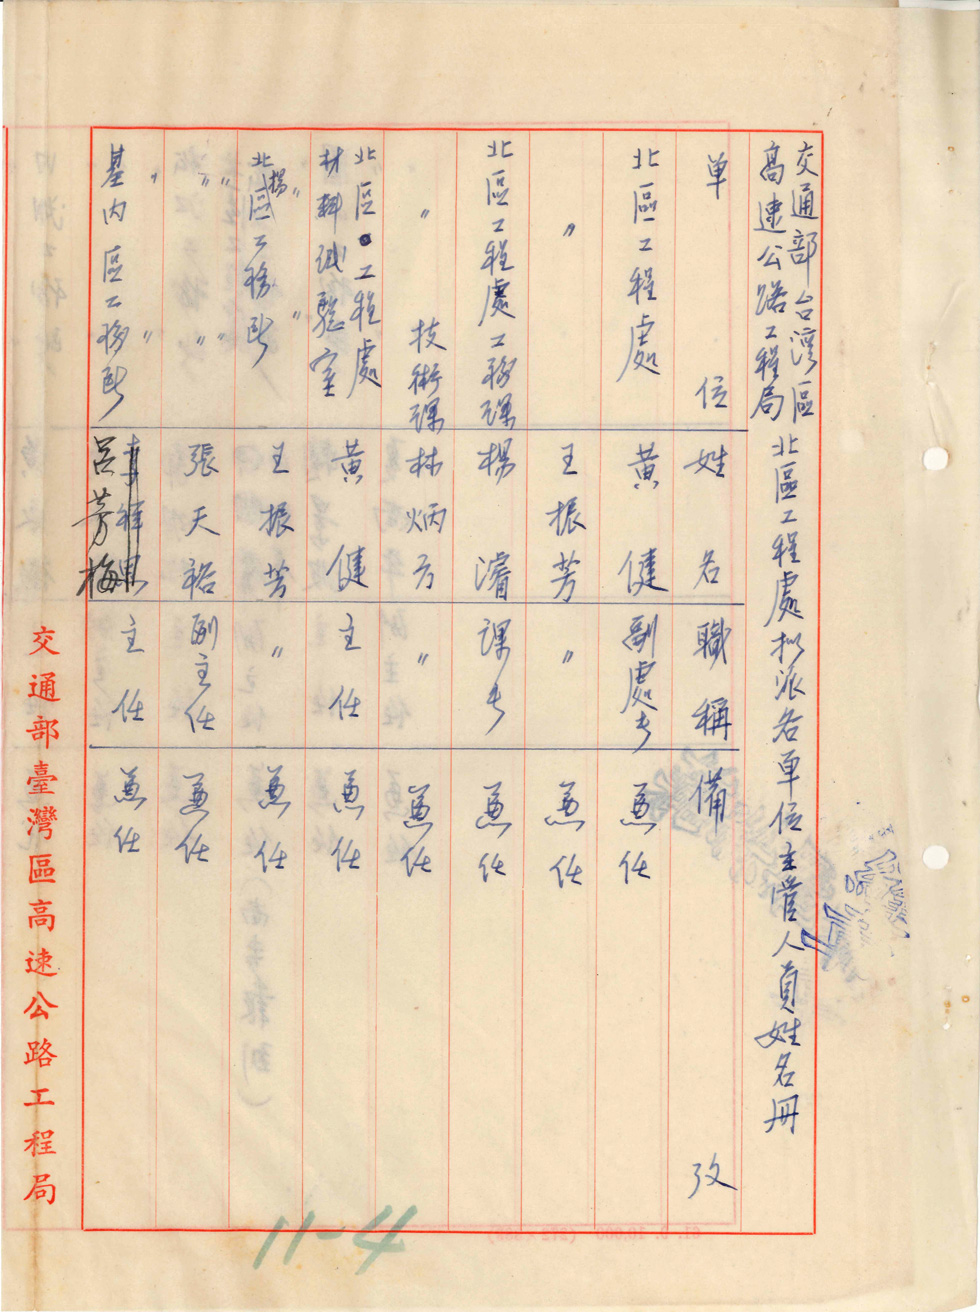 交通部台灣區
高速公路工程局
北區工程處拟派各單位主管人員姓名册
單位 姓名 職稱 備攷
北區工程處 黃健 副處長 兼任
〃 王振芳 〃 兼任
北區工程處工務課 楊濬 課長 兼任
〃 技術課 林炳方 〃 兼任
北區工程處
材料試驗室 黃健 主任 兼任
北楊區工務所 王振芳 〃 兼任
〃 〃 張天裕 副主任 兼任
基內區工務所 呂芳梅 主任 兼任
交通部臺灣區高速公路工程局
11-4